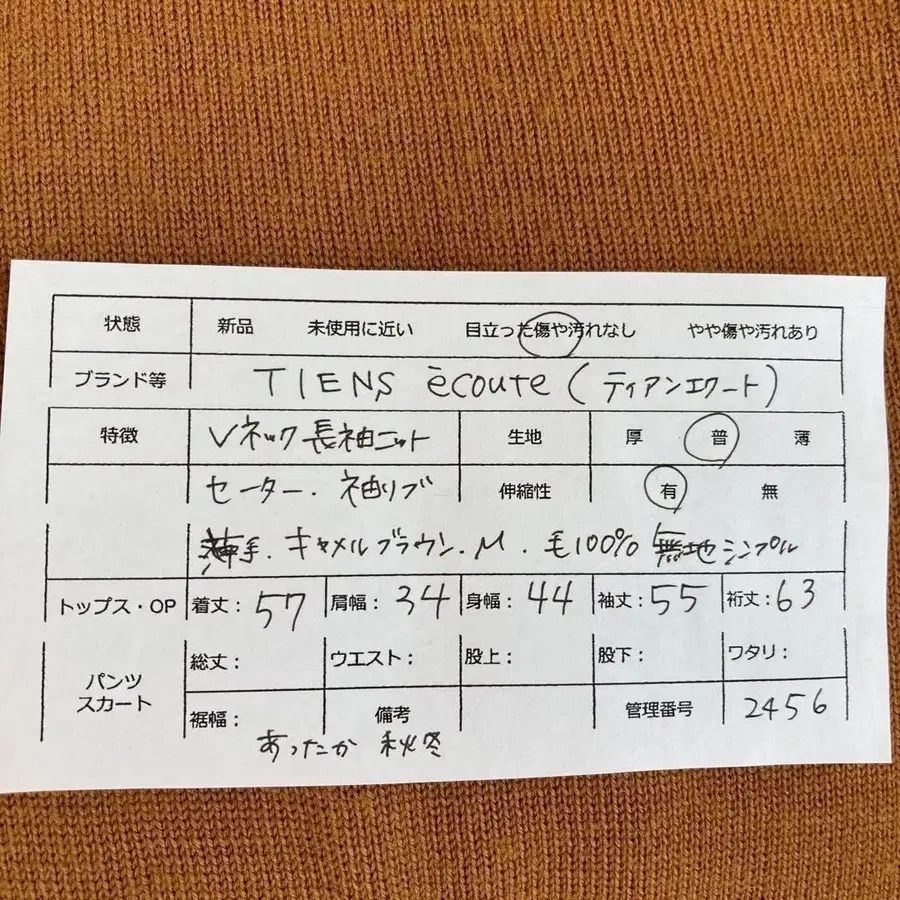 状態 新品 未使用に近い 目立った傷や汚れなし やや傷や汚れあり
ブランド等 TIENS ècoute (ティアンエクート)
特徴 Vネック長袖ニット 生地 厚 普 薄
セーター. 袖リブ 伸縮性 有 無
薄手. キャメルブラウン. M. 毛100% 無地シンプル
トップス・OP 着丈: 57 肩幅: 34 身幅: 44 袖丈: 55 裄丈: 63
パンツ スカート 総丈: ウエスト: 股上: 股下: ワタリ:
裾幅: 備考 管理番号 2456
あったか 秋冬